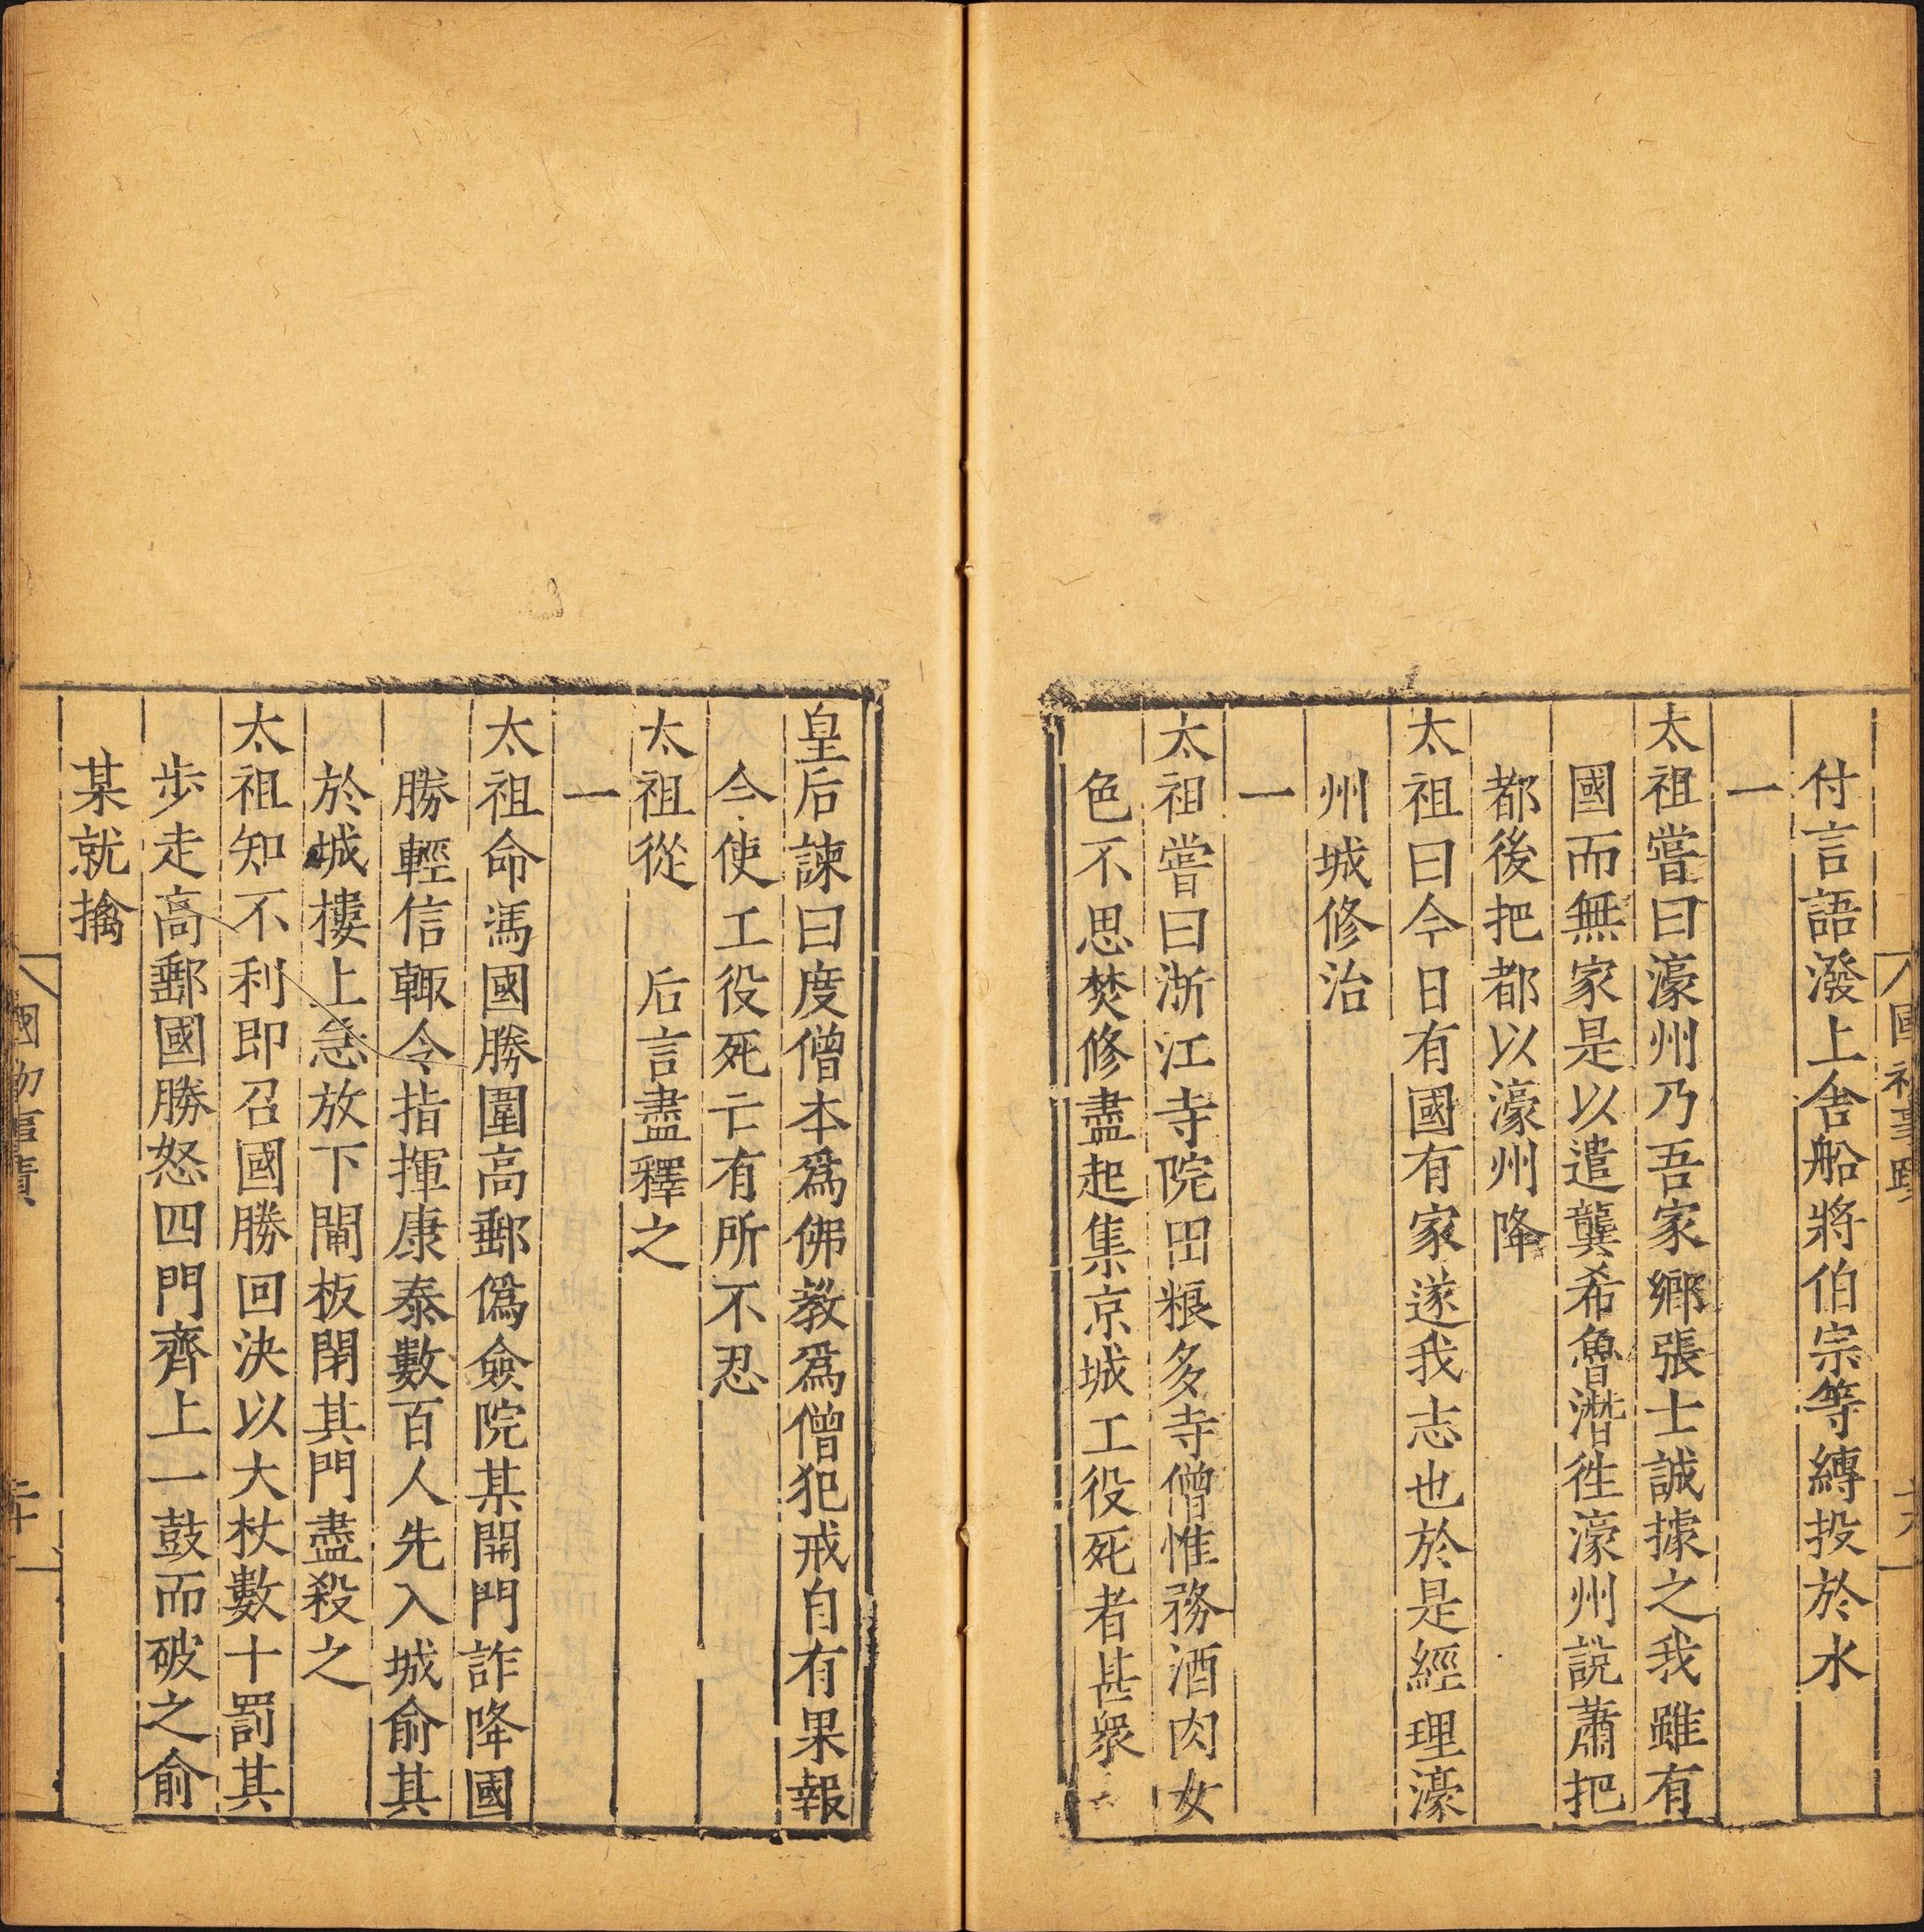 付言語潑上舎船將伯宗等縛投於水
一
太祖嘗曰濠州乃吾家鄉張士誠據之我雖有
國而無家是以遣龔希魯潛徃濠州說蕭把
都後把都以濠州降
太祖曰今日有國有家遂我志也於是經理濠
州城修治
一
太祖嘗曰浙江寺院田粮多寺僧惟務酒肉女
色不思焚修盡起集京城工役死者甚衆
皇后諫曰度僧本爲佛教爲僧犯戒自有果報
今使工役死亡有所不忍
太祖從 后言盡釋之
一
太祖命馮國勝圍高郵僞僉院某開門詐降國
勝輕信輙令指揮康泰數百人先入城俞其
於城樓上急放下閘板閉其門盡殺之
太祖知不利即召國勝回決以大杖數十罰其
步走高郵國勝怒四門齊上一鼓而破之俞
某就擒